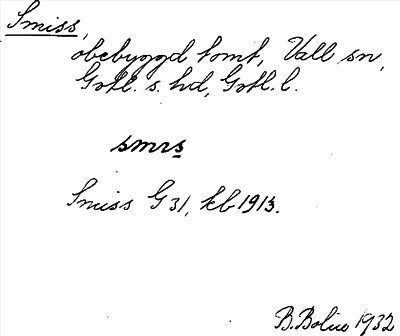 Smiss,
obebyggd tomt, Vall sn,
Gotl. s. hd, Gotl. l.
smɪs
Smiss G 31, kb 1913.
B. Bolin 1932